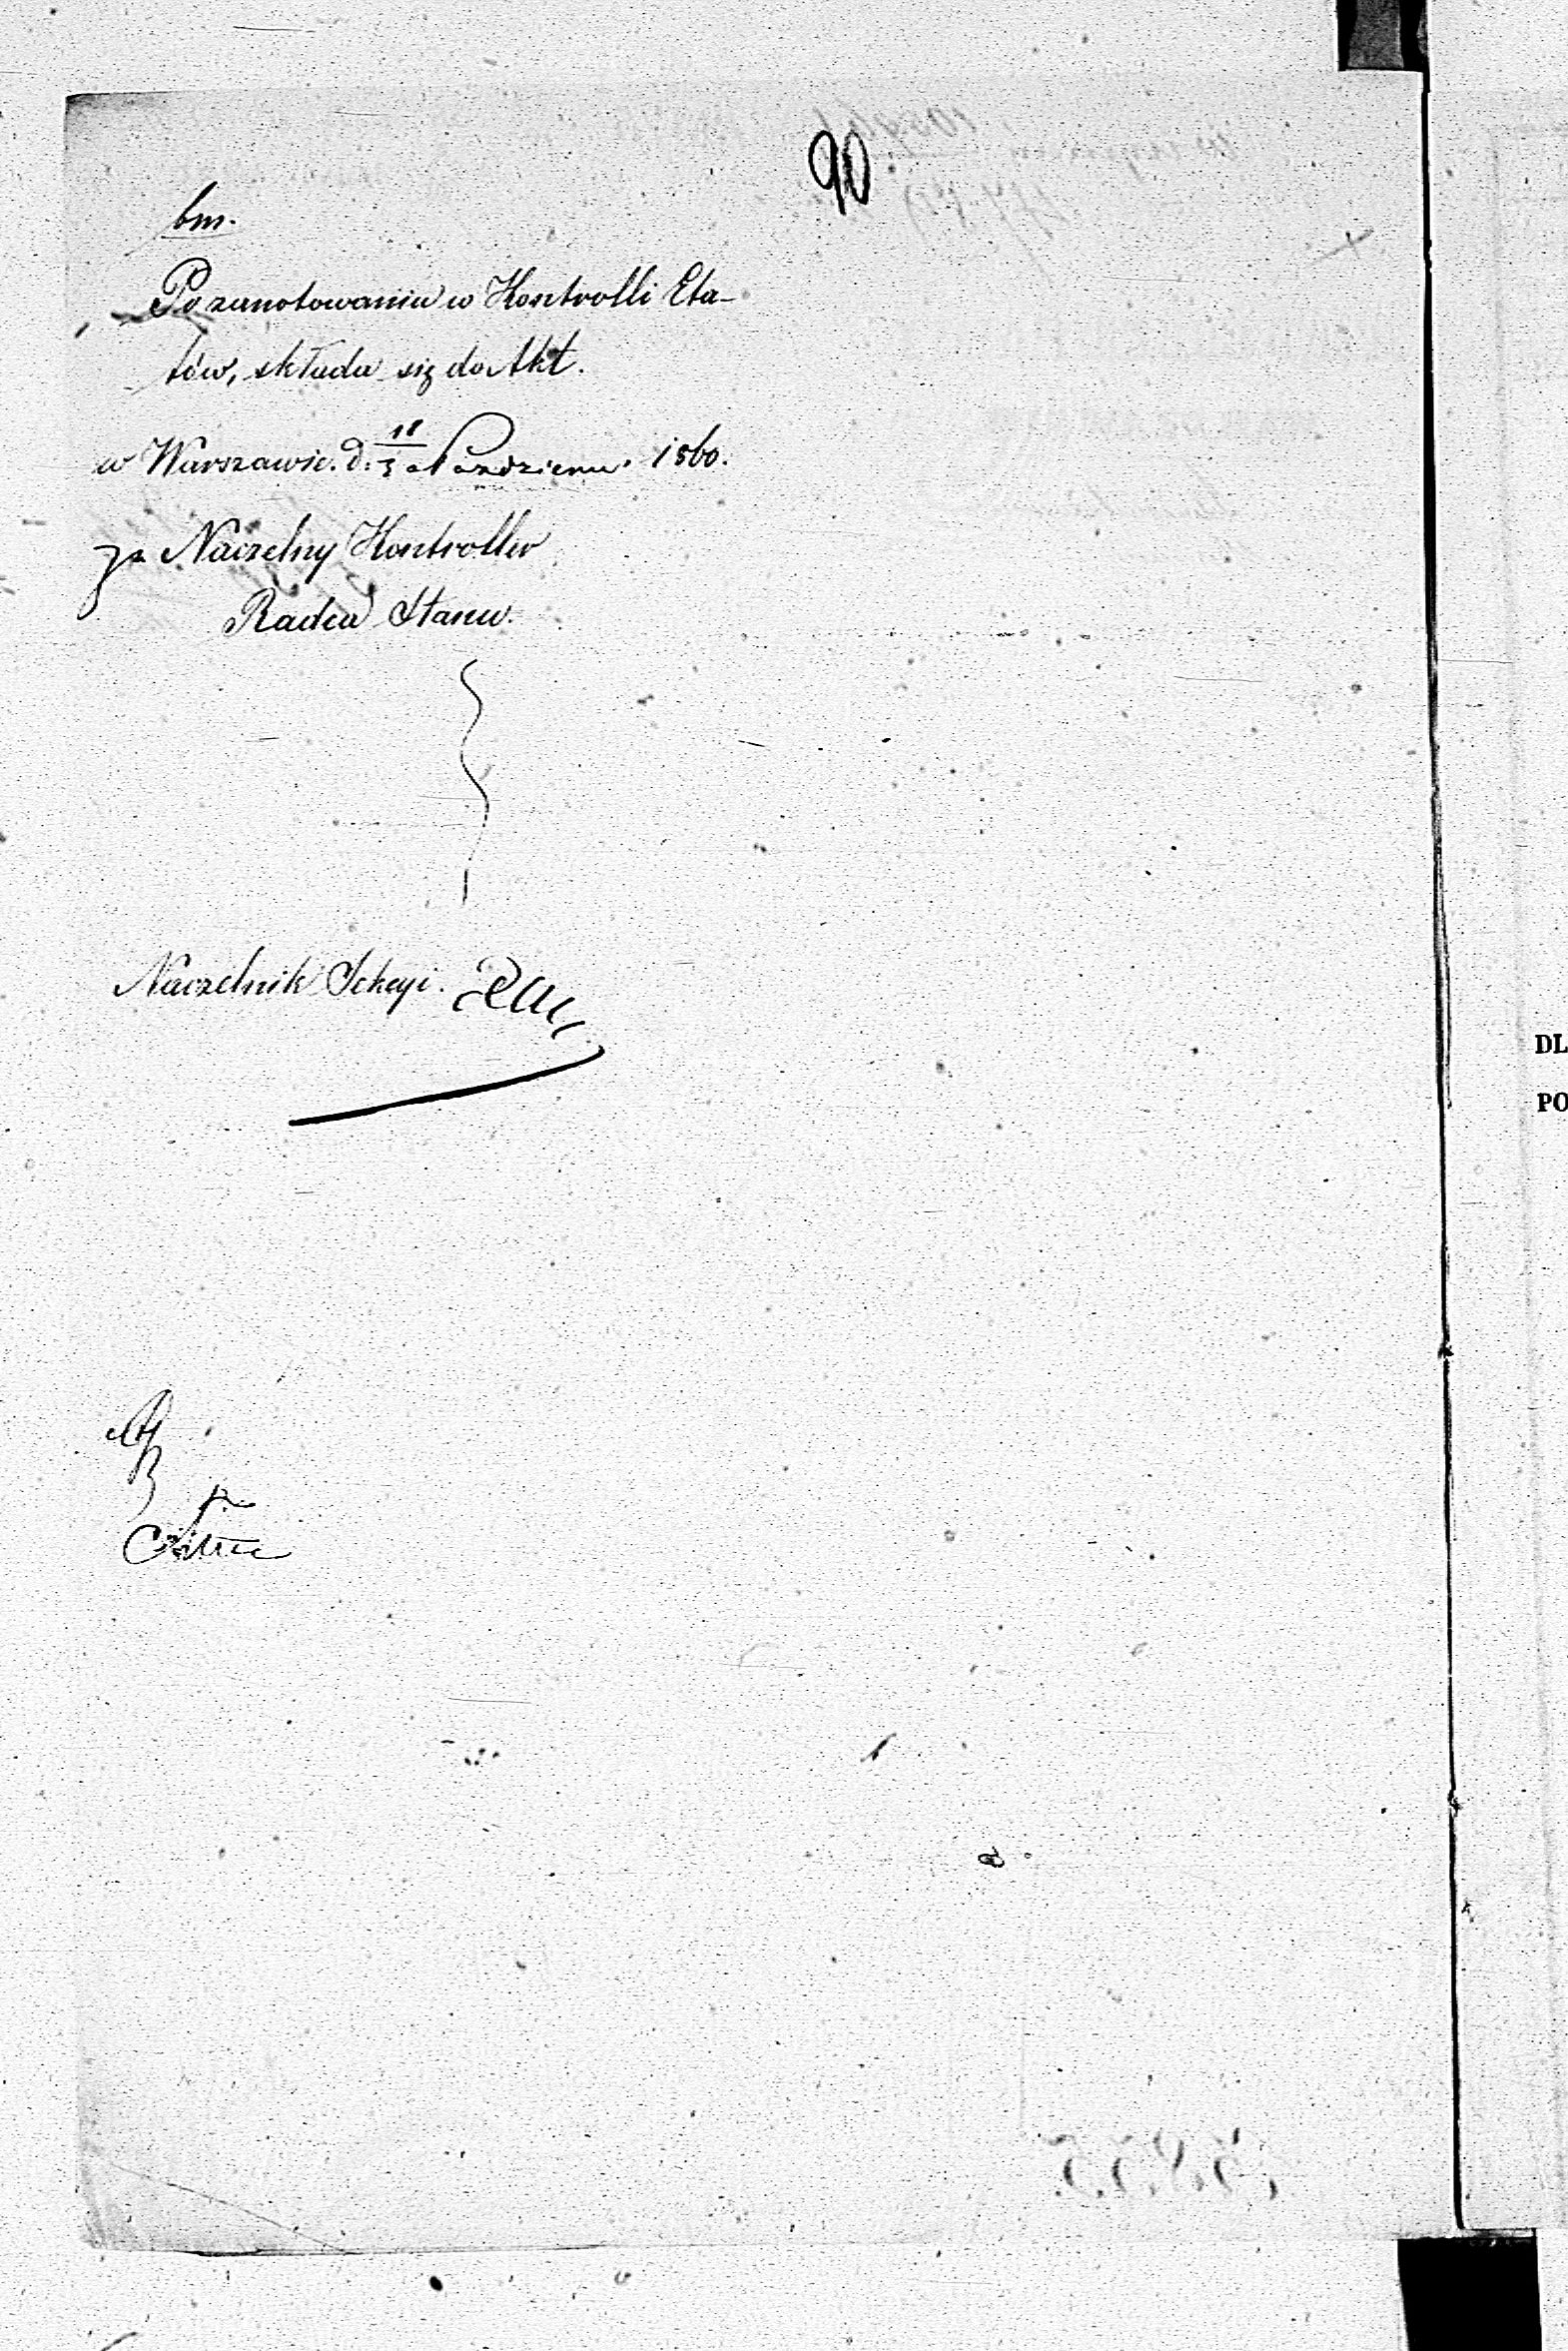 90
bm.
Po zanotowaniu w Kontrolli Eta-
tów, składa się do Akt.
w Warszawie. d. Październ. 1860.
za Naczelny Kontroller
Radca Stanu.
Naczelnik Sekcyi.
DL
PO